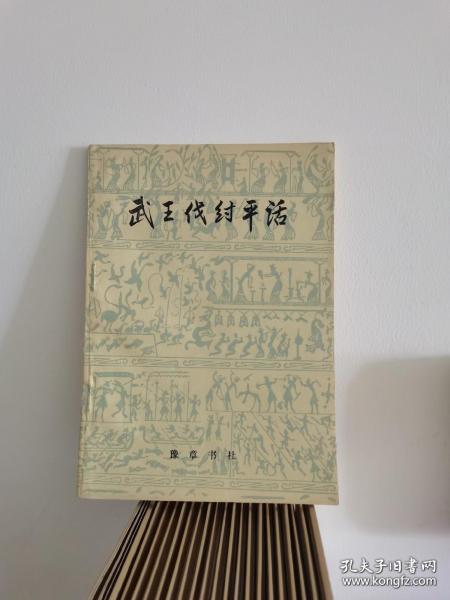 武王伐纣平话
豫章书社
孔夫子旧书网
www.kongfz.com